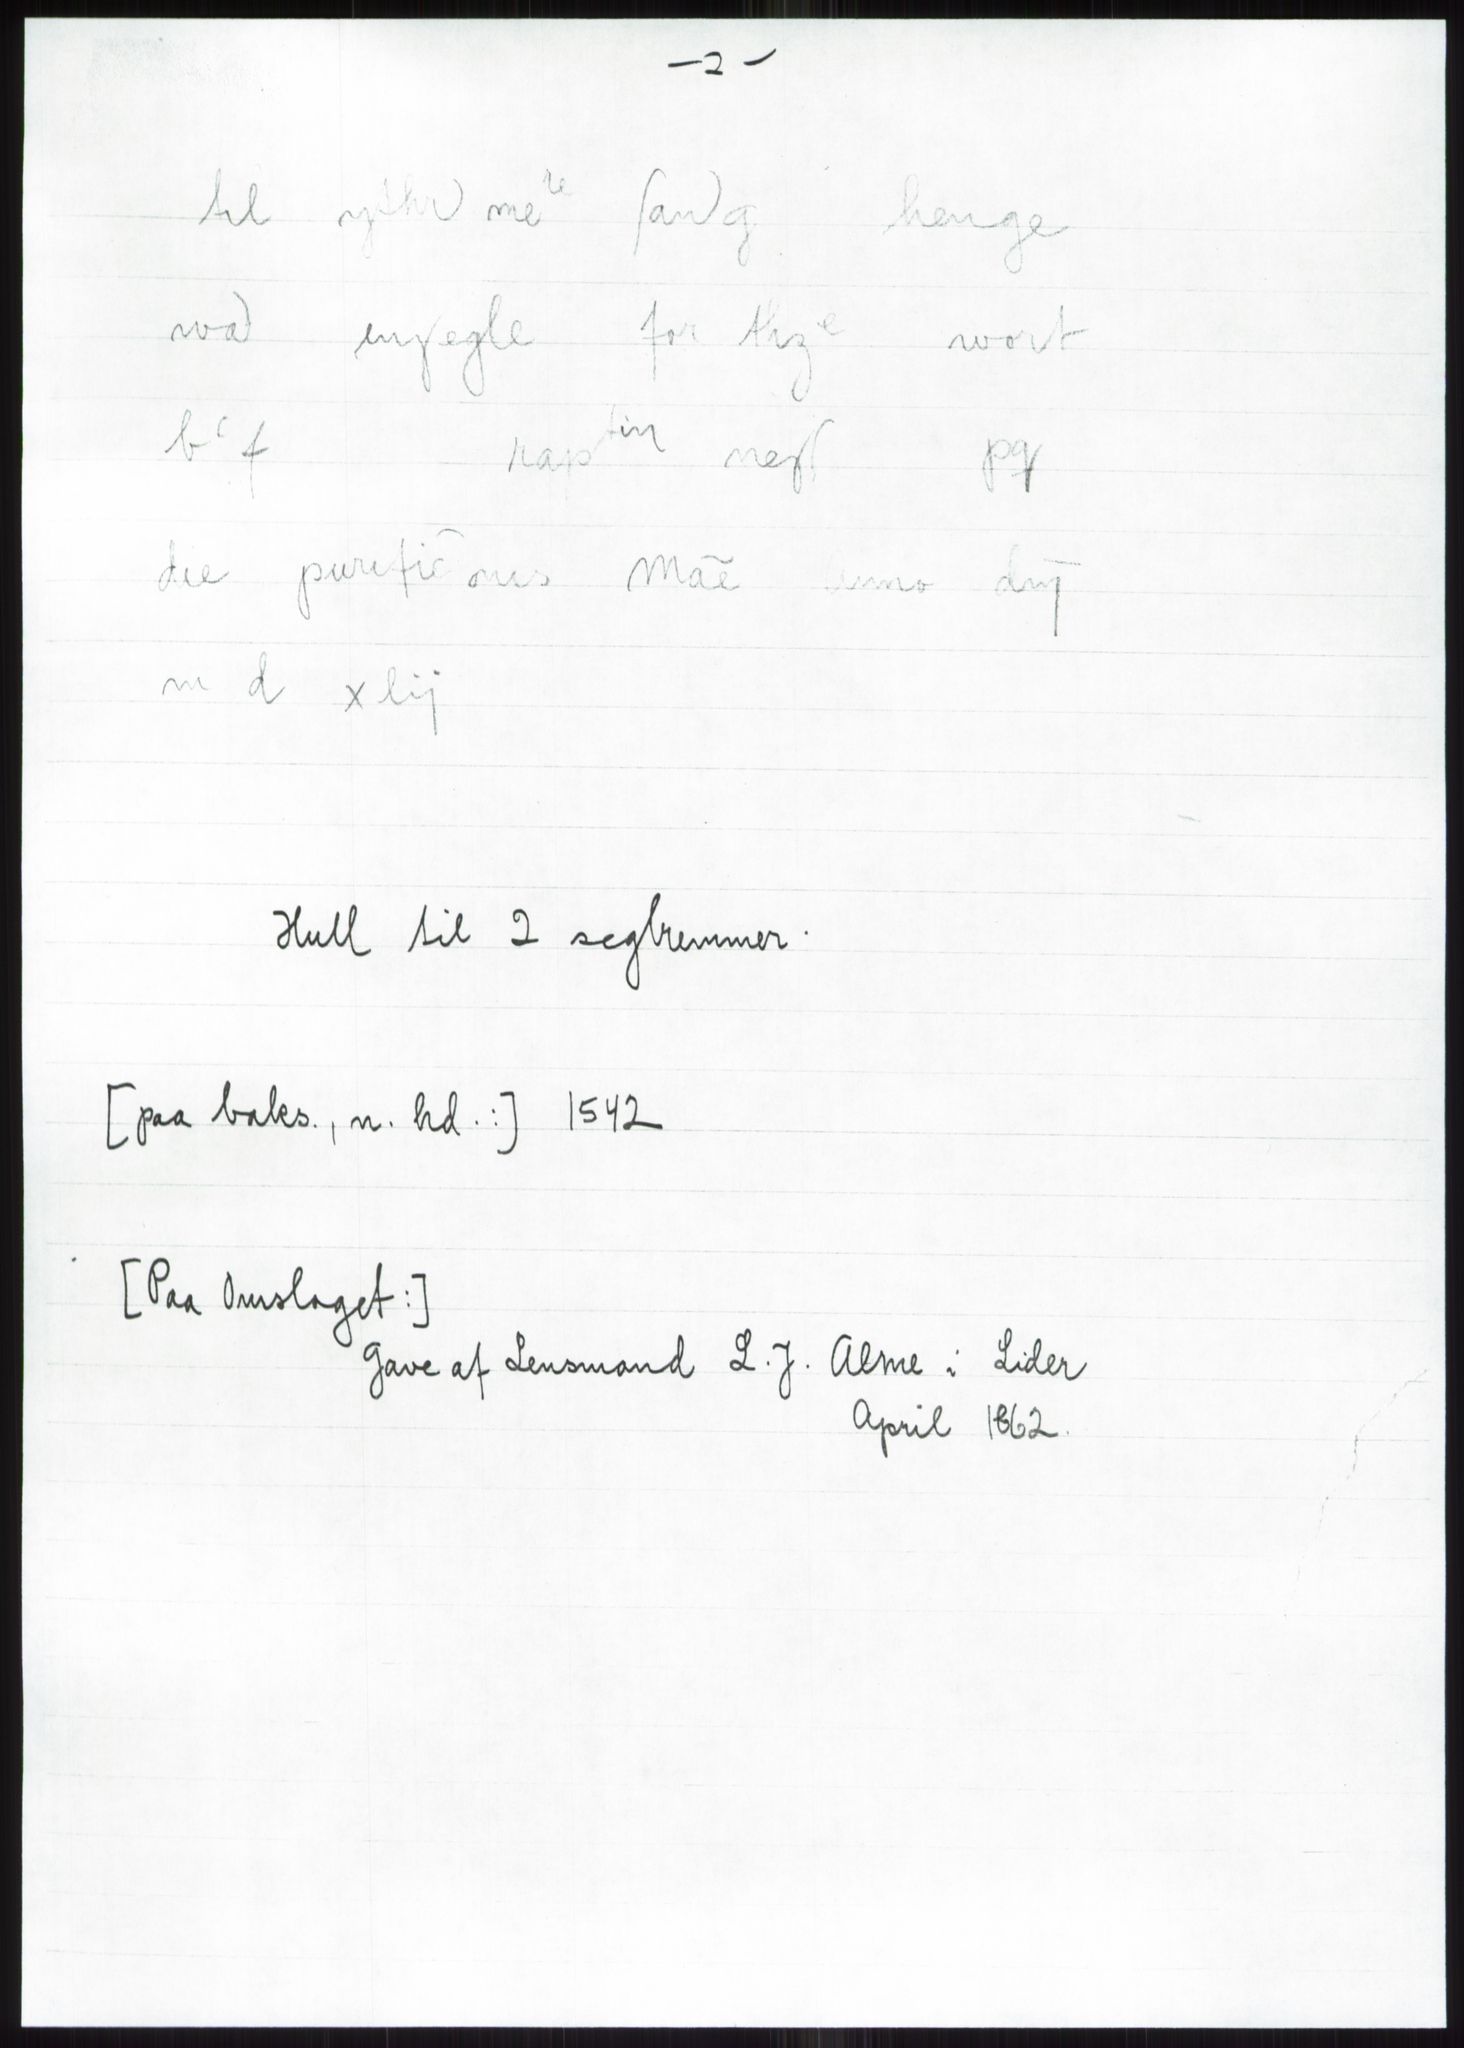 — 2 —
til ythr me^re sand g henge
wad inzegle for thz^e wort
b^c f rap^tin nest pq
die purificōnis Māe Anno dnj
m d xlij
Hull til 2 seglremmer.
[paa baks., n. hd.:] 1542
[Paa Omslaget:]
Gave af Lensmand L. J. Alme i Lider
April 1862.